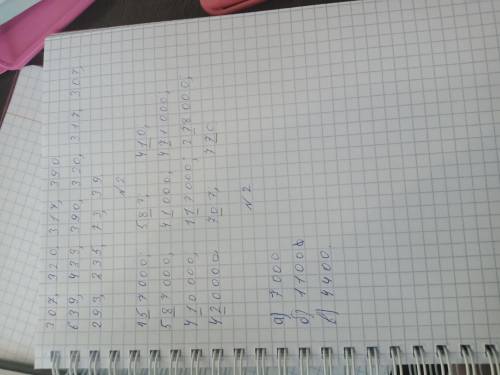 307, 320, 317, 390
639, 433, 390, 320, 317, 307,
293, 235, 73, 39
№2
157000, 587, 410,
587000, 41000, 421000,
410000, 117000, 278000,
420000 707, 770
№2
а) 7000
б) 11000
в) 4400